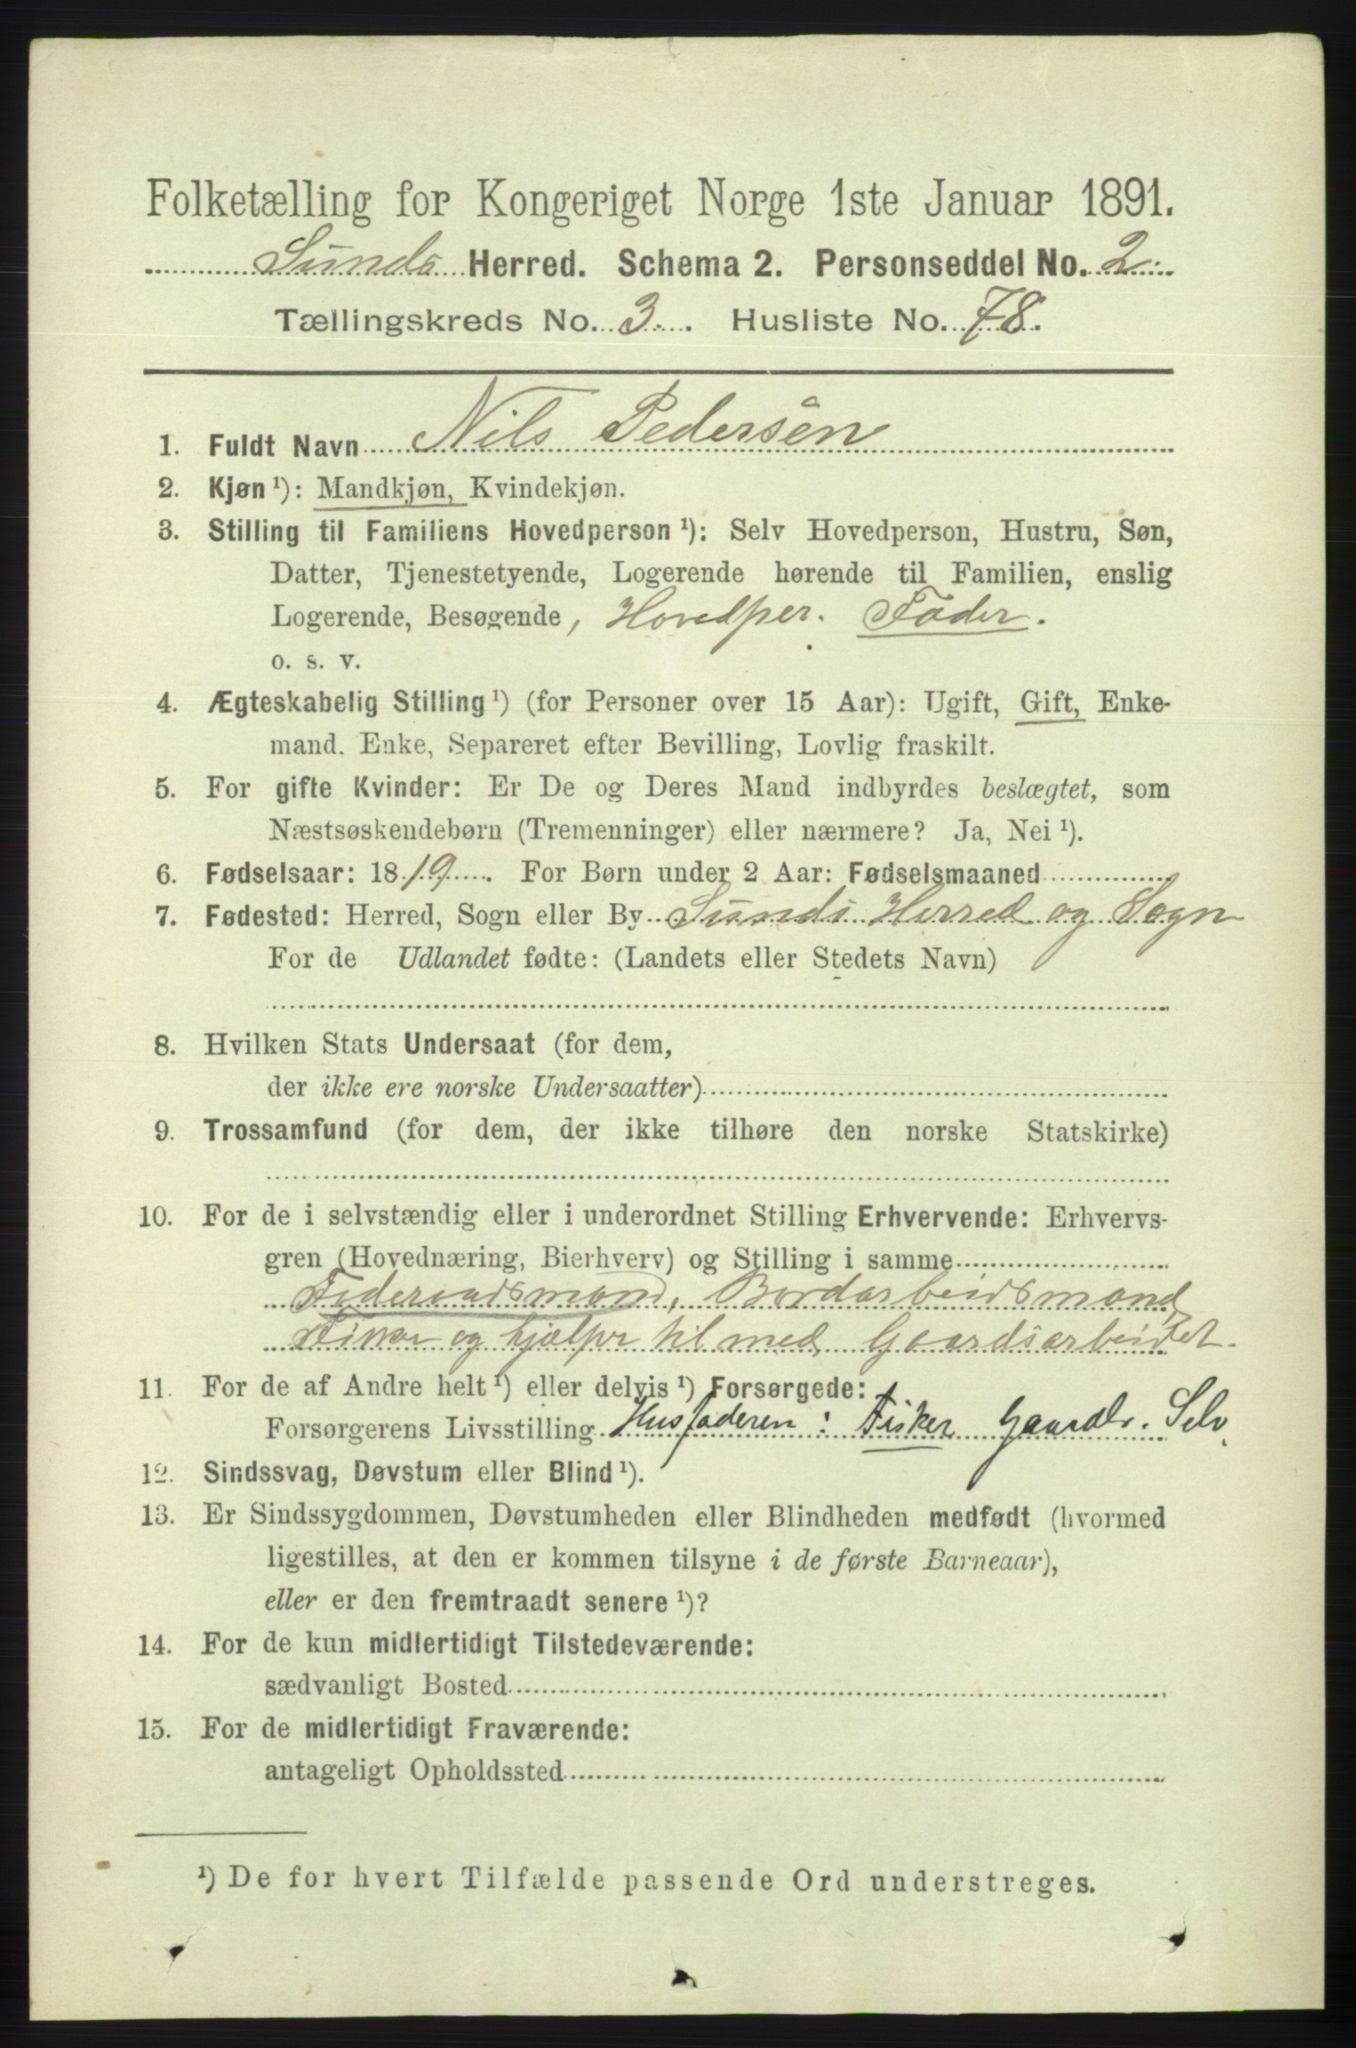 Folketælling for Kongeriget Norge 1ste Januar 1891.
Sunds Herred. Schema 2. Personseddel No. 2.
Tællingskreds No. 3. Husliste No. 78.
1. Fuldt Navn Nils Pedersen
2. Kjøn ¹): Mandkjøn, Kvindekjøn.
3. Stilling til Familiens Hovedperson ¹): Selv Hovedperson, Hustru, Søn,
Datter, Tjenestetyende, Logerende hørende til Familien, enslig
Logerende, Besøgende, Hovedper. Fader.
o. s. v.
4. Ægteskabelig Stilling ¹) (for Personer over 15 Aar): Ugift, Gift, Enke-
mand, Enke, Separeret efter Bevilling, Lovlig fraskilt.
5. For gifte Kvinder: Er De og Deres Mand indbyrdes beslægtet, som
Næstsøskendebørn (Tremenninger) eller nærmere? Ja, Nei ¹).
6. Fødselsaar: 1819. For Børn under 2 Aar: Fødselsmaaned
7. Fødested: Herred, Sogn eller By Sunds Herred og Sogn
For de Udlandet fødte: (Landets eller Stedets Navn)
8. Hvilken Stats Undersaat (for dem,
der ikke ere norske Undersaatter)
9. Trossamfund (for dem, der ikke tilhøre den norske Statskirke)
10. For de i selvstændig eller i underordnet Stilling Erhvervende: Erhvervs-
gren (Hovednæring, Bierhverv) og Stilling i samme
Føderaadsmand, Bordarbeidsmand,
Fisker og hjælper til med Gaardsarbeidet.
11. For de af Andre helt ¹) eller delvis ¹) Forsørgede:
Forsørgerens Livsstilling Husfaderen: Fisker Gaardbr. Selv.
12. Sindssvag, Døvstum eller Blind ¹).
13. Er Sindssygdommen, Døvstumheden eller Blindheden medfødt (hvormed
ligestilles, at den er kommen tilsyne i de første Barneaar),
eller er den fremtraadt senere ¹)?
14. For de kun midlertidigt Tilstedeværende:
sædvanligt Bosted
15. For de midlertidigt Fraværende:
antageligt Opholdssted
¹) De for hvert Tilfælde passende Ord understreges.